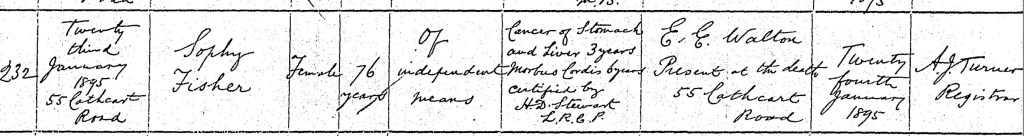 232
Twenty
third
January
1895
55 Cathcart
Road
Sophy
Fisher
Female
76
years
Of
independent
means
Cancer of Stomach
and Liver 3 years
Morbus Cordis 6 years
certified by
H.D. Stewart
L.R.C.P.
E. E. Walton
Present at the death
55 Cathcart
Road
Twenty
fourth
January
1895
A J Turner
Registrar